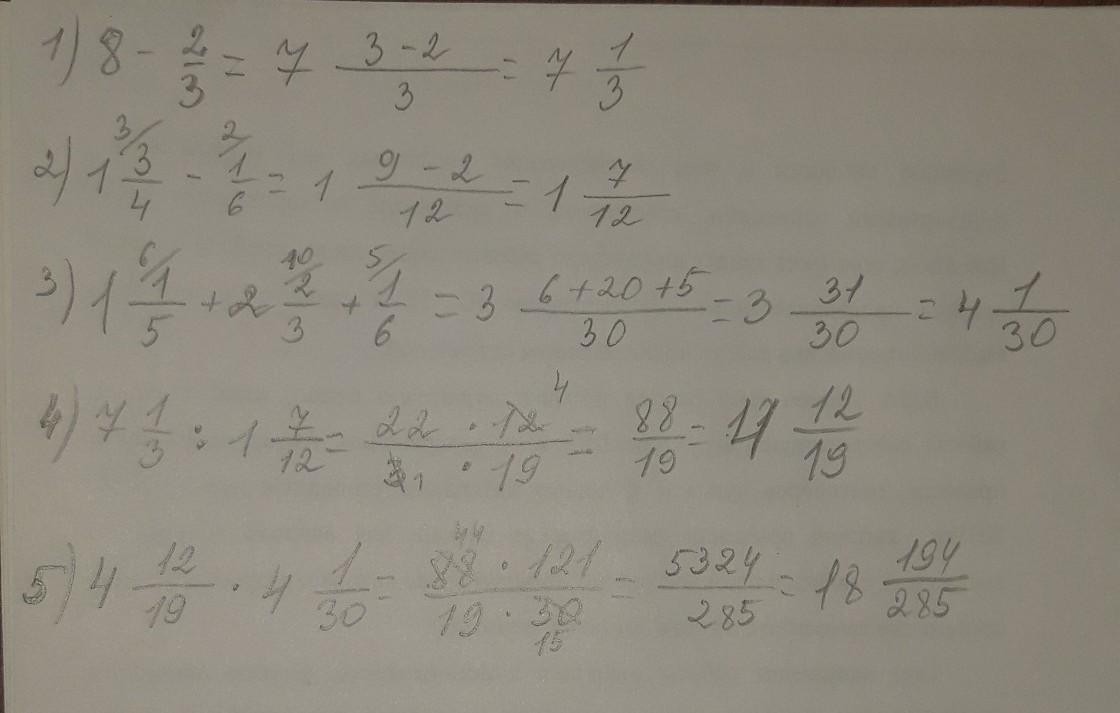 1) 8 - 2/3 = 7 (3-2)/3 = 7 1/3
2) 1 3/ 3/4 - 2/ 1/6 = 1 (9-2)/12 = 1 7/12
3) 1 6/ 1/5 + 2 10/ 2/3 + 5/ 1/6 = 3 (6+20+5)/30 = 3 31/30 = 4 1/30
4) 7 1/3 : 1 7/12 = (22 · 12 4)/(3 1 · 19) = 88/19 = 4 12/19
5) 4 12/19 · 4 1/30 = (88 44 · 121)/(19 · 30 15) = 5324/285 = 18 194/285